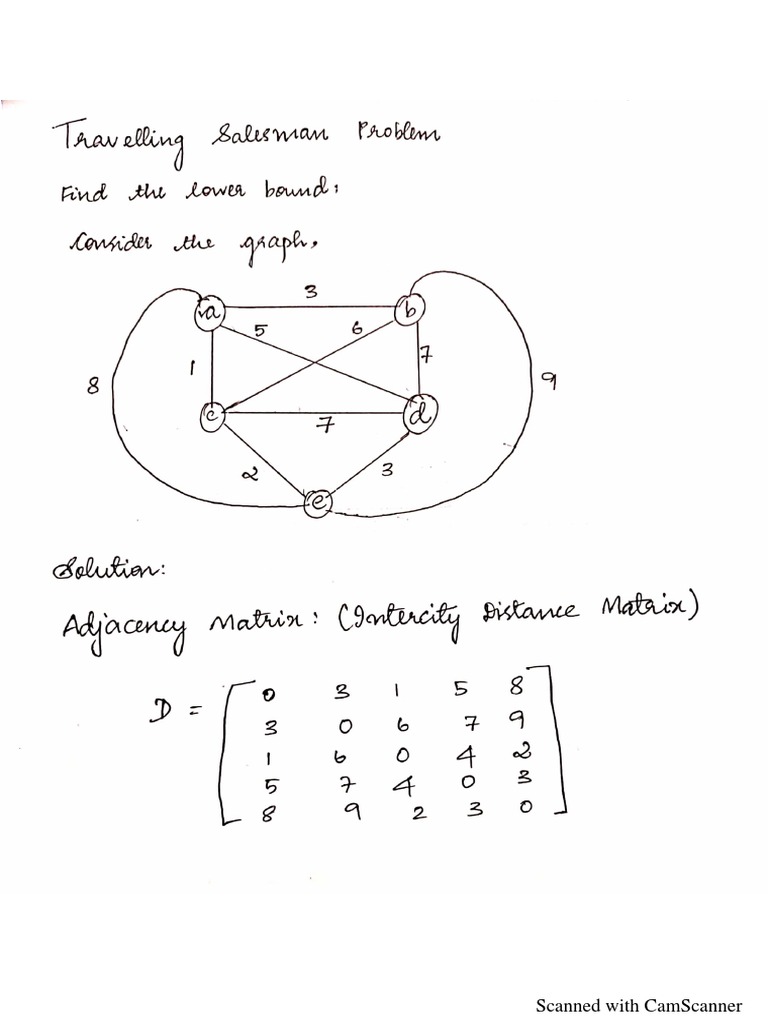 Travelling Salesman Problem
Find the lower bound:
Consider the graph,
3
a
b
5
6
1
7
8
9
c
d
7
2
3
e
Solution:
Adjacency Matrix: (Intercity Distance Matrix)
D =
0 3 1 5 8
3 0 6 7 9
1 6 0 4 2
5 7 4 0 3
8 9 2 3 0
Scanned with CamScanner